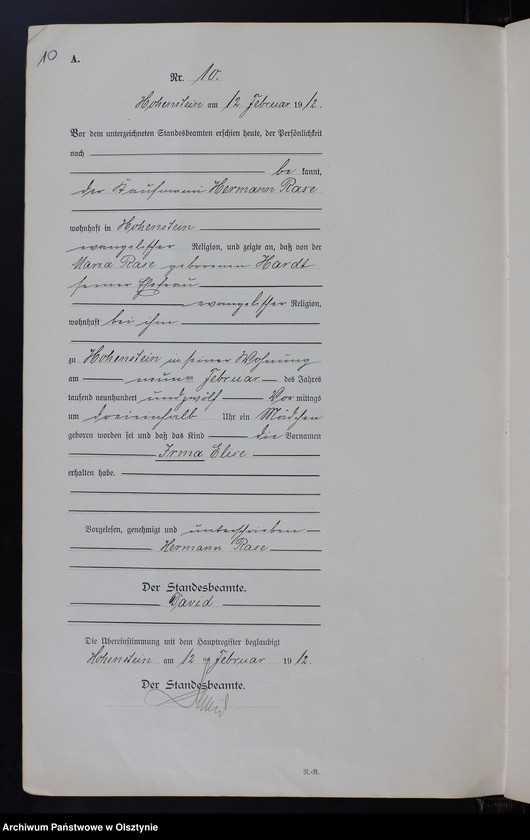 10
A.
Nr. 10.
Hohenstein am 12. Februar 1912.
Vor dem unterzeichneten Standesbeamten erschien heute, der Persönlichkeit
nach
be kannt,
der Kaufmann Hermann Rase
wohnhaft in Hohenstein
evangelischer Religion, und zeigte an, daß von der
Maria Rase geborenen Hardt
seiner Ehefrau
evangelischer Religion,
wohnhaft bei ihm
zu Hohenstein in seiner Wohnung
am neunten Februar des Jahres
tausend neunhundert undzwölf Vor mittags
um dreieinhalb Uhr ein Mädchen
geboren worden sei und daß das Kind die Vornamen
Irma Elise
erhalten habe.
Vorgelesen, genehmigt und unterschrieben
Hermann Rase
Der Standesbeamte.
David
Die Übereinstimmung mit dem Hauptregister beglaubigt
Hohenstein am 12 ten Februar 1912.
Der Standesbeamte.
David
R.-R.
Archiwum Państwowe w Olsztynie